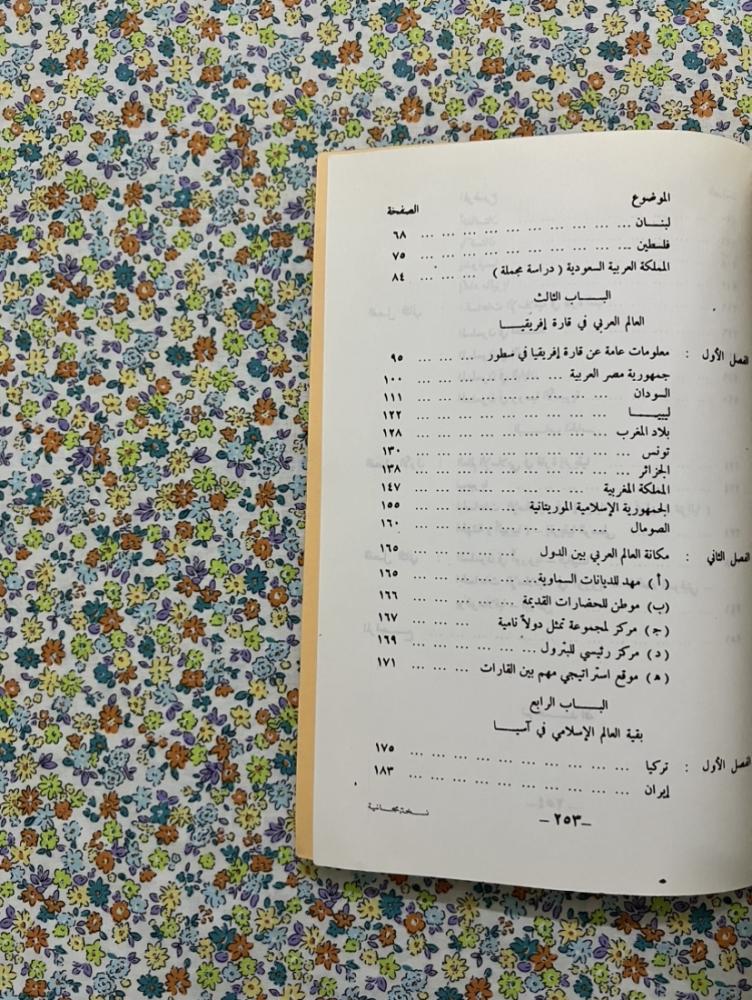 الموضوع الصفحة
لبنـــان ... ... ... ... ... ... ... ... ... ٦٨
فلسطين ... ... ... ... ... ... ... ... ... ٧٥
المملكة العربية السعودية ( دراسة مجملة ) ... ... ... ٨٤
البـــاب الثالث
العالم العربي في قارة إفريقيـــا
الفصل الأول : معلومات عامة عن قارة إفريقيا في سطور ... ... ... ٩٥
جمهورية مصر العربية ... ... ... ... ... ... ١٠٠
السودان ... ... ... ... ... ... ... ... ١١١
ليبيـــا ... ... ... ... ... ... ... ... ١٢٢
بلاد المغرب ... ... ... ... ... ... ... ... ١٢٨
تونس ... ... ... ... ... ... ... ... ١٣٠
الجزائر ... ... ... ... ... ... ... ... ١٣٨
المملكة المغربية ... ... ... ... ... ... ... ١٤٧
الجمهورية الإسلامية الموريتانية ... ... ... ... ... ١٥٥
الصومال ... ... ... ... ... ... ... ... ١٦٠
الفصل الثاني : مكانة العالم العربي بين الدول ... ... ... ... ... ١٦٥
( أ ) مهد للديانات السماوية ... ... ... ... ... ١٦٥
(ب) موطن للحضارات القديمة ... ... ... ... ... ١٦٦
(ج) مركز لمجموعة تمثل دولاً نامية ... ... ... ١٦٧
( د ) مركز رئيسي للبترول ... ... ... ... ... ١٦٩
( ه ) موقع استراتيجي مهم بين القارات ... ... ... ١٧١
البـــاب الرابع
بقية العالم الإسلامي في آسيـــا
الفصل الأول : تركيا ... ... ... ... ... ... ... ... ١٧٥
إيران ... ... ... ... ... ... ... ... ١٨٣
–٢٥٣–
نسخة مجانية